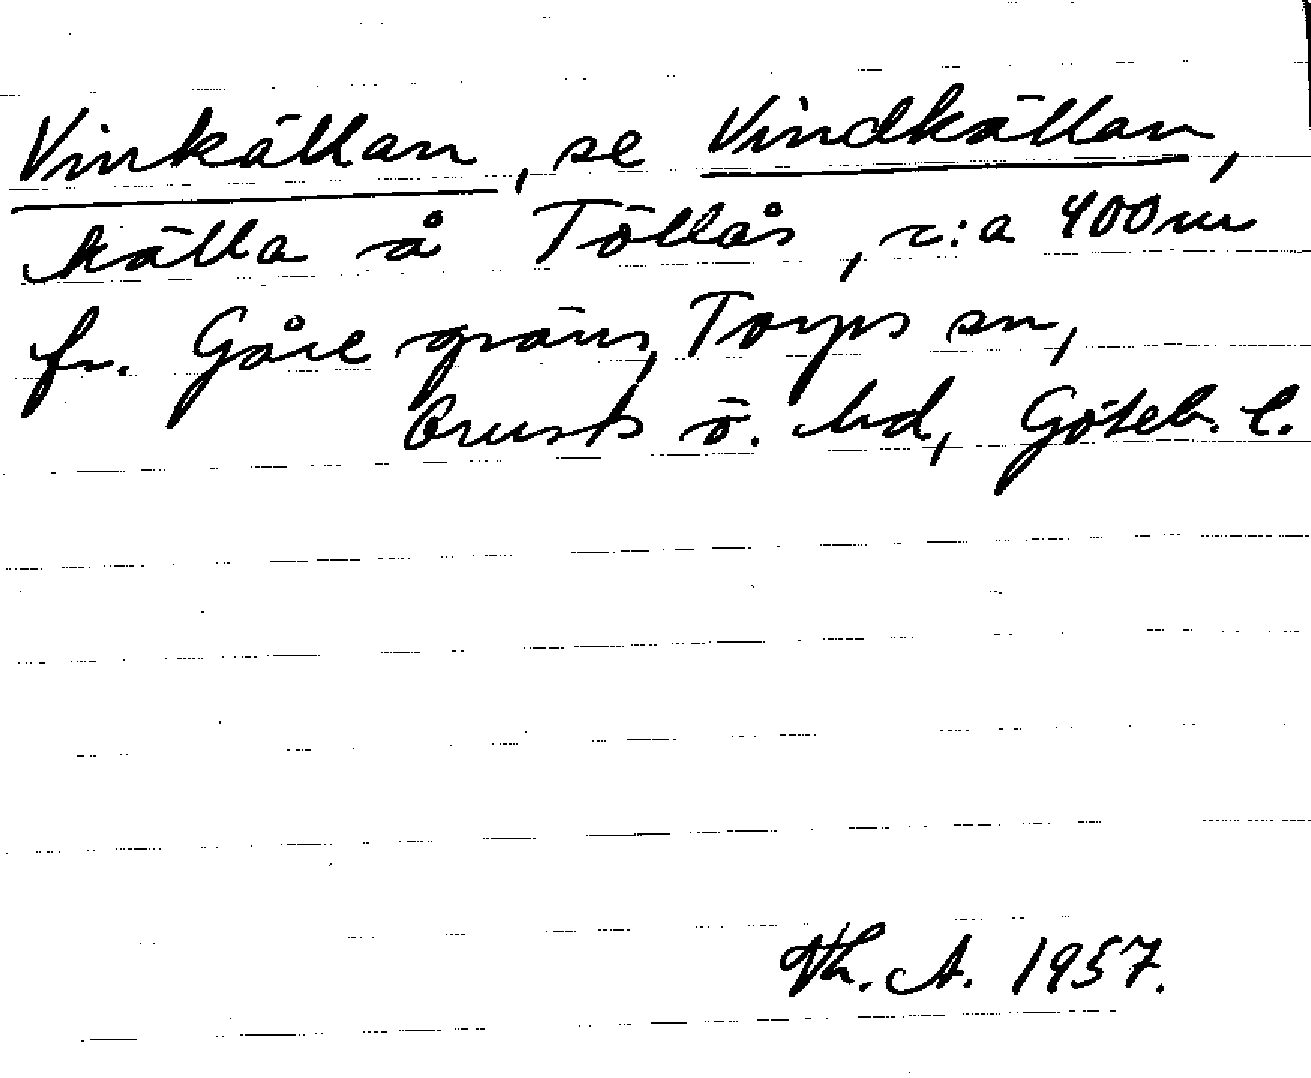 Vinkällan, se Vindkällan,
källa å Töllås, c:a 400 m
fr. Gåre gräns, Torps sn,
Orusts ö. hd, Göteb. l.
Th. A. 1957.